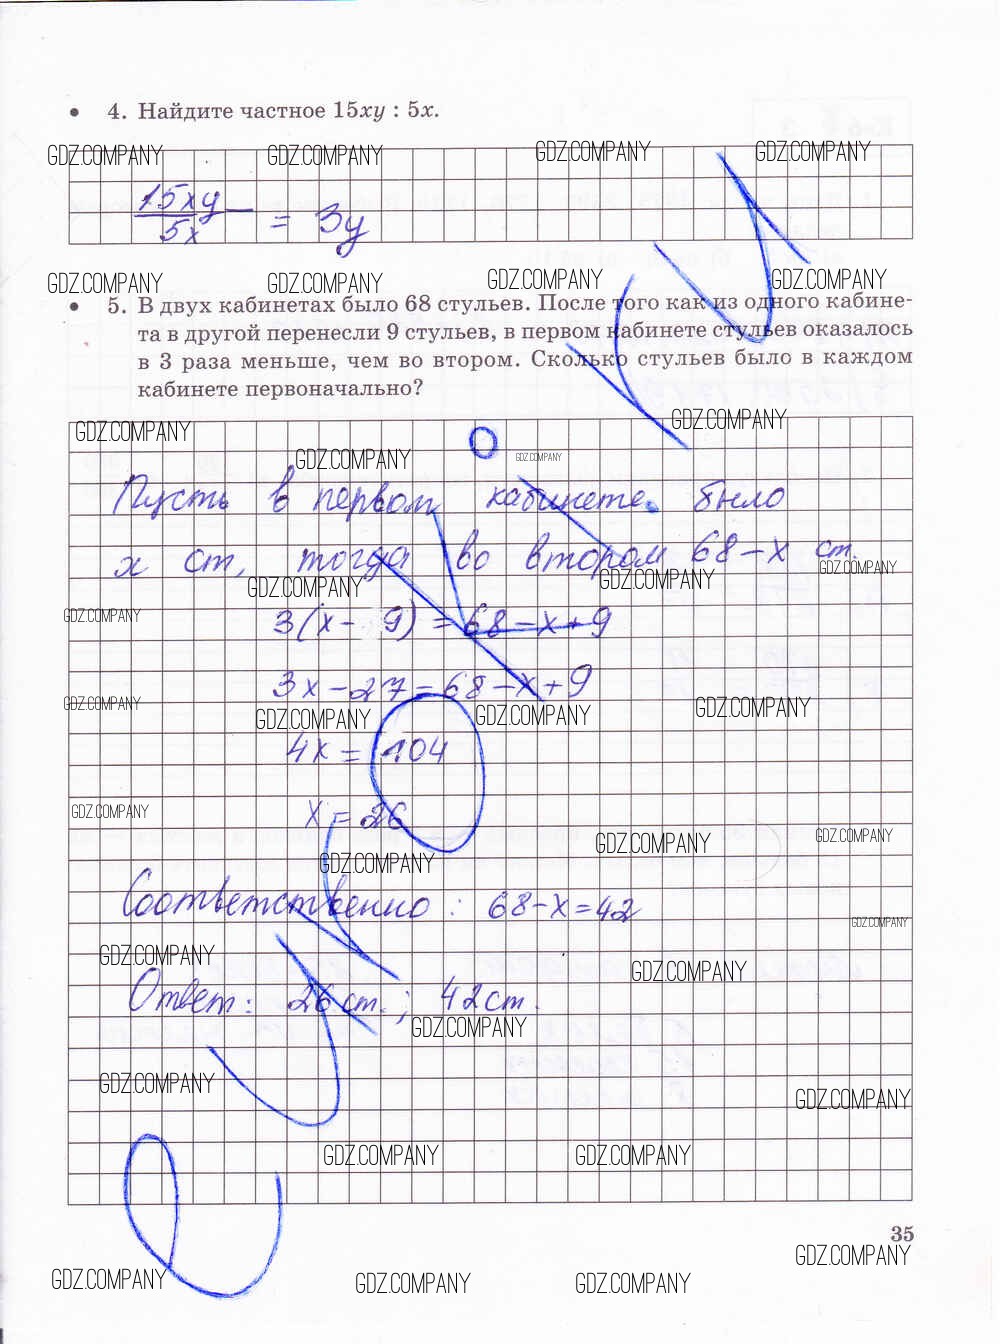 4. Найдите частное 15xy : 5x.
GDZ.COMPANY GDZ.COMPANY GDZ.COMPANY GDZ.COMPANY
15xy
5x
= 3y
GDZ.COMPANY GDZ.COMPANY GDZ.COMPANY GDZ.COMPANY
5. В двух кабинетах было 68 стульев. После того как из одного кабине-
та в другой перенесли 9 стульев, в первом кабинете стульев оказалось
в 3 раза меньше, чем во втором. Сколько стульев было в каждом
кабинете первоначально?
GDZ.COMPANY GDZ.COMPANY
GDZ.COMPANY GDZ.COMPANY
Пусть в первом кабинете было
x ст, тогда во втором 68-x ст.
GDZ.COMPANY
GDZ.COMPANY GDZ.COMPANY
GDZ.COMPANY
3(x-9)=68-x+9
3x-27=68-x+9
GDZ.COMPANY GDZ.COMPANY GDZ.COMPANY GDZ.COMPANY
4x=104
x=26
GDZ.COMPANY GDZ.COMPANY GDZ.COMPANY
GDZ.COMPANY
Соответственно: 68-x=42
GDZ.COMPANY
GDZ.COMPANY GDZ.COMPANY
Ответ: 26 ст.; 42 ст.
GDZ.COMPANY
GDZ.COMPANY GDZ.COMPANY
GDZ.COMPANY GDZ.COMPANY
35
GDZ.COMPANY
GDZ.COMPANY GDZ.COMPANY GDZ.COMPANY